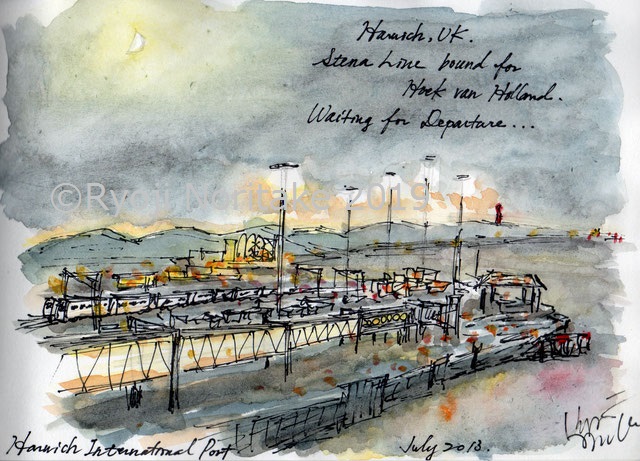 Harwich, UK.
Stena Line bound for
Hoek van Holland.
Waiting for Departure...
2019
Harwich International Port
July 2013.